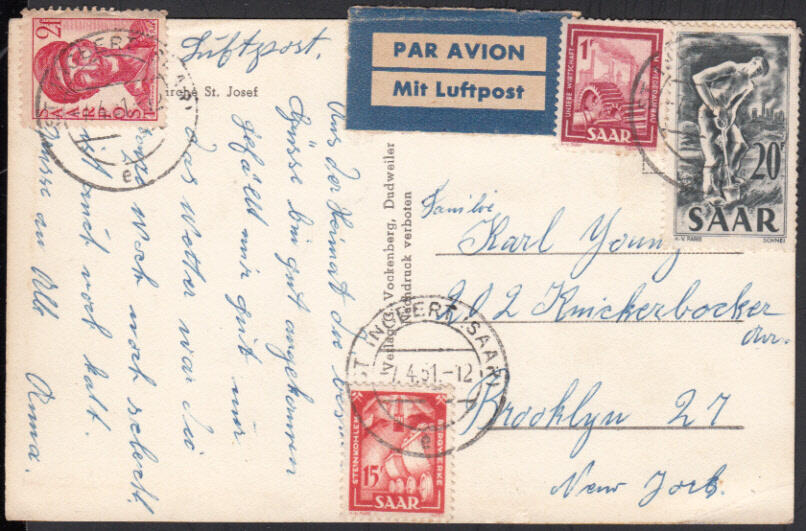 Luftpost.
PAR AVION
Mit Luftpost
2F
SAAR POST
1F
UNSERE WIRTSCHAFT
SAAR
20F
SAAR
H.V. PARIS
SCHNEI
ST. INGBERT (SAAR)
e
Kirche St. Josef
Aus der Heimat die besten
Grüsse bin gut angekommen
gefällt mir gut nur
das Wetter war die
noch noch schlecht
ist mit noch kalt.
Grüsse an Alle
Anna.
Verlag G. Vockenberg, Dudweiler
Nachdruck verboten
Familie
Karl Young
202 Knickerbocker
Ave.
Brooklyn 27
New York.
ST. INGBERT (SAAR)
7.4.51-12
e
STEINKOHLEN
BERGWERKE
15F
SAAR